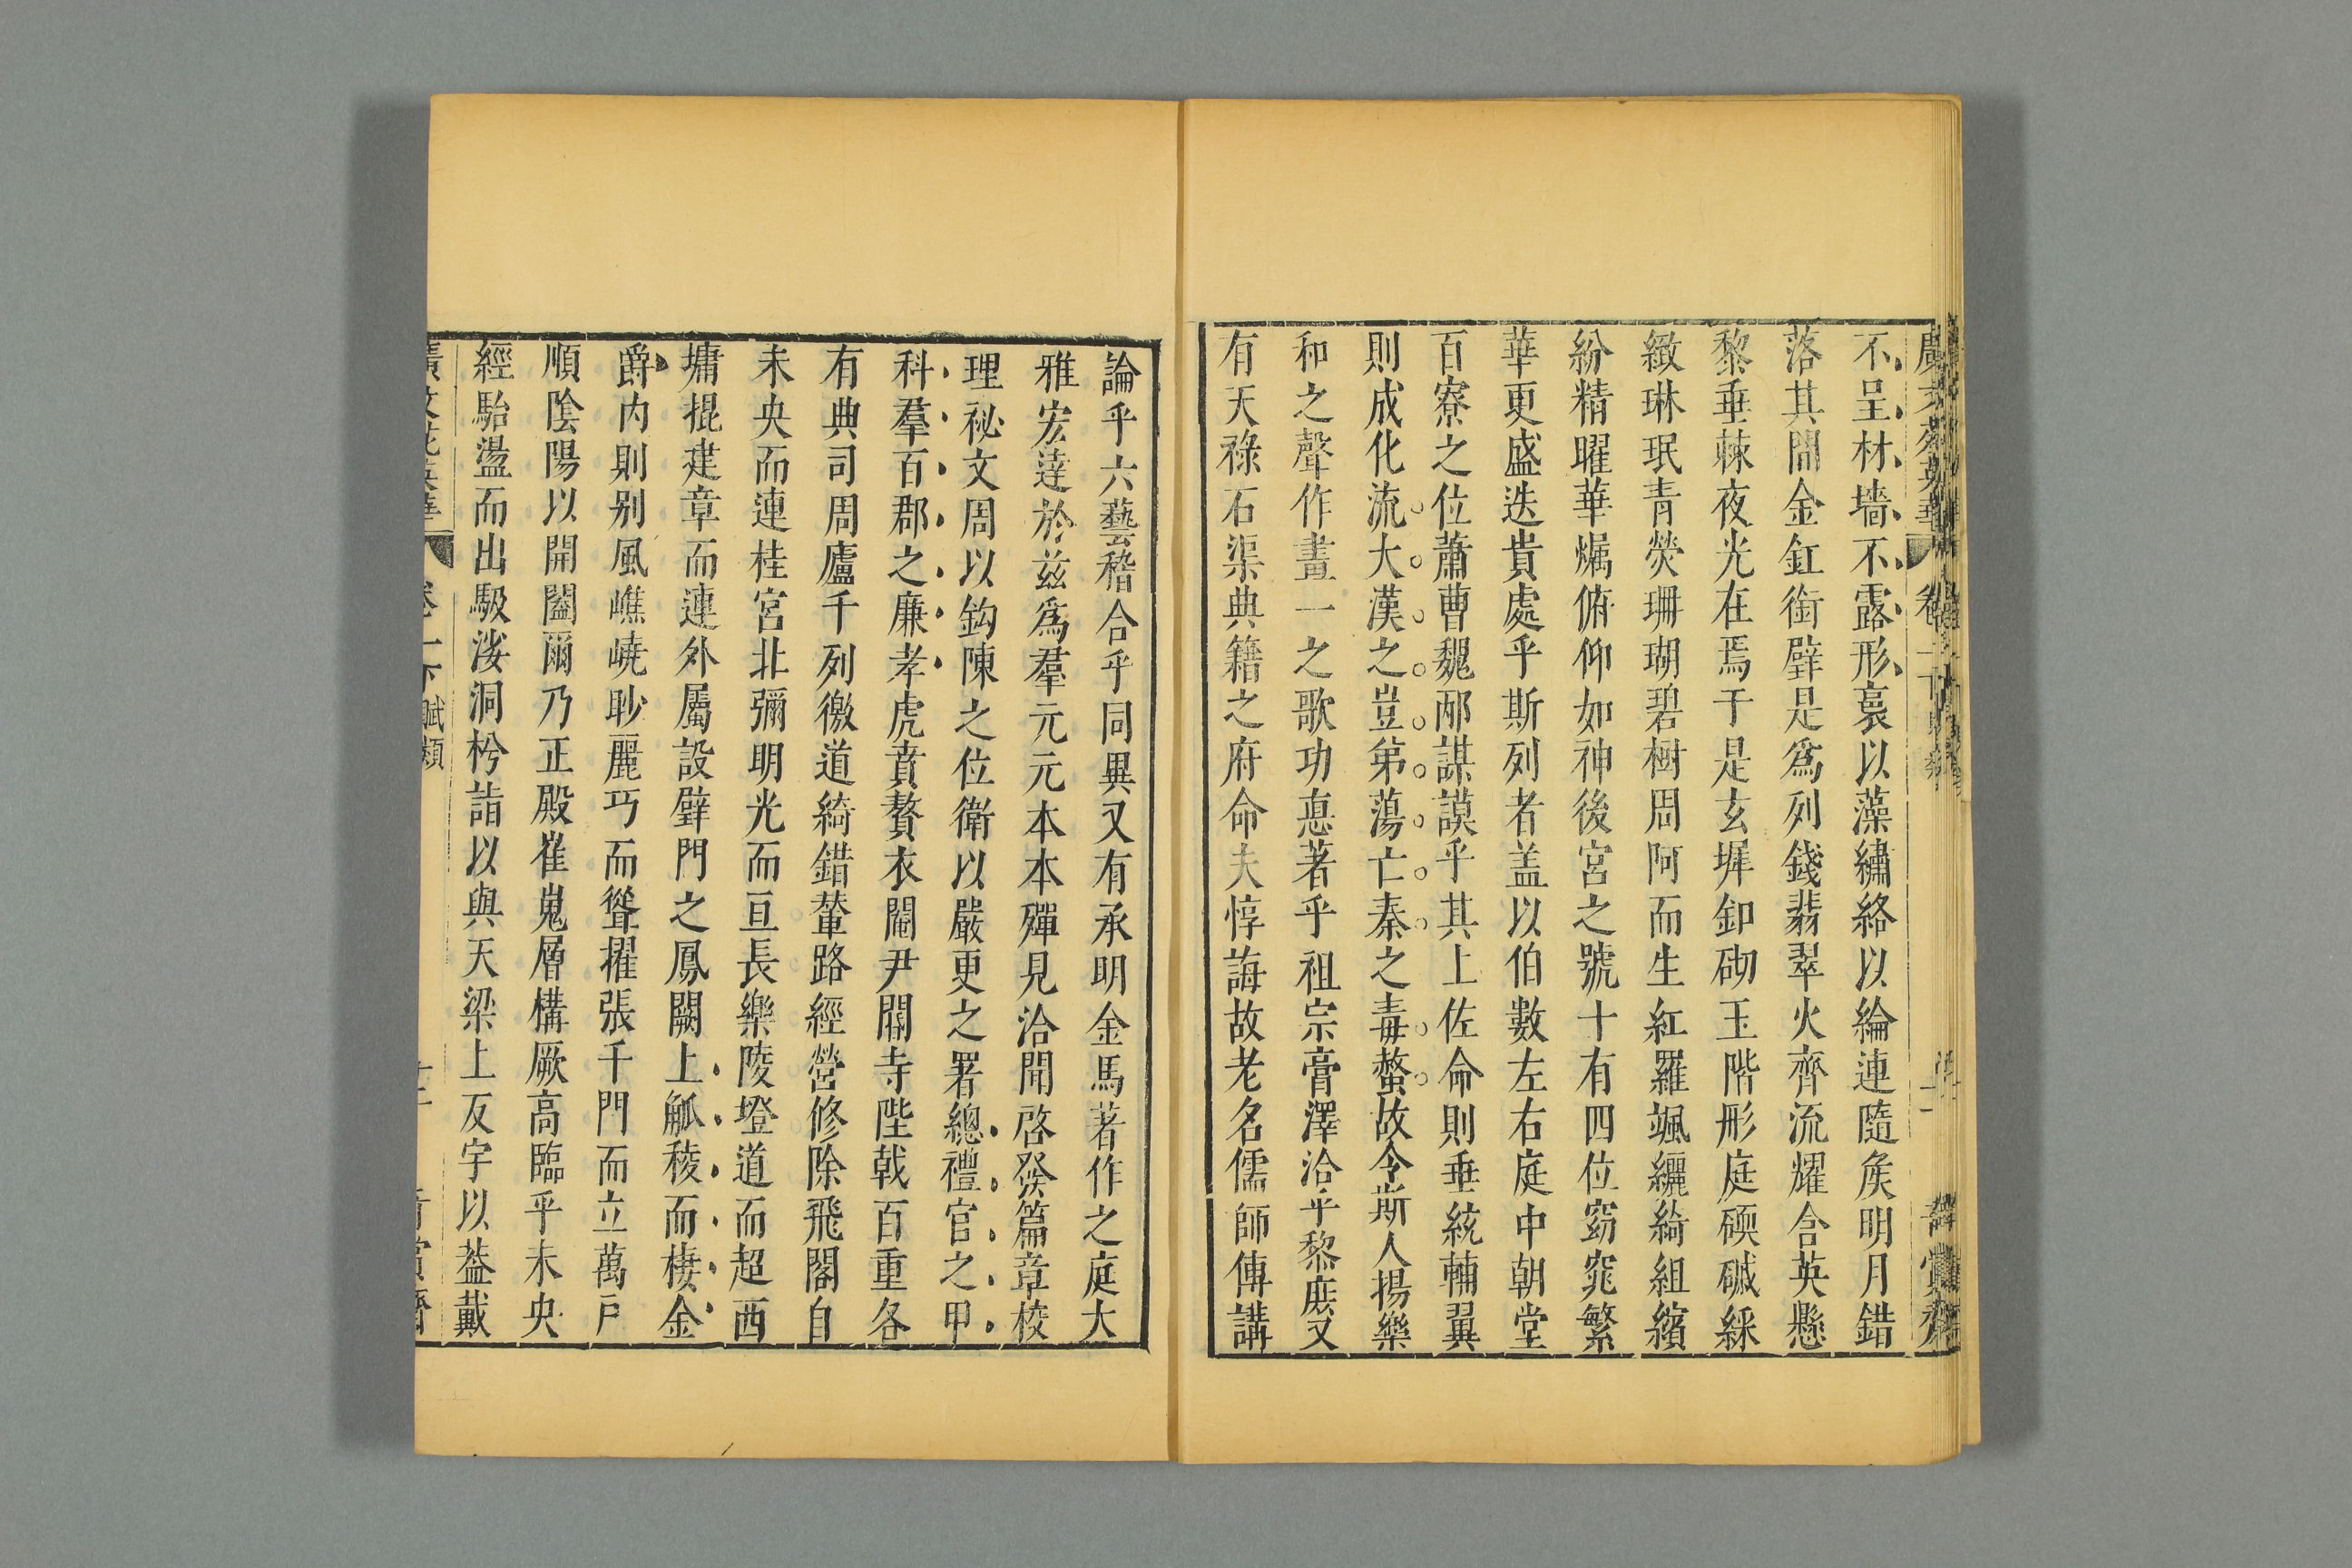 不呈材墻不露形裛以藻繡絡以綸連隨矦明月錯
落其間金釭銜璧是爲列錢翡翠火齊流耀含英懸
黎垂棘夜光在焉于是玄墀釦砌玉階彤庭碝磩綵
緻琳珉青熒珊瑚碧樹周阿而生紅羅颯纚綺組繽
紛精曜華燭俯仰如神後宮之號十有四位窈窕繁
華更盛迭貴處乎斯列者盖以伯數左右庭中朝堂
百寮之位蕭曹魏邴謀謨乎其上佐命則垂統輔翼
則成化流大漢之豈第蕩亡秦之毒螫故令斯人揚樂
和之聲作畫一之歌功悳著乎祖宗膏澤洽乎黎庶又
有天祿石渠典籍之府命夫惇誨故老名儒師傅講
論乎六藝稽合乎同異又有承明金馬著作之庭大
雅宏達於兹爲羣元元本本殫見洽聞啓發篇章校
理祕文周以鈎陳之位衛以嚴更之署總禮官之甲
科羣百郡之廉孝虎賁贅衣閹尹閽寺陛戟百重各
有典司周廬千列徼道綺錯輦路經營修除飛閣自
未央而連桂宮北彌明光而亘長樂陵墱道而超西
墉掍建章而連外屬設璧門之鳳闕上觚稜而棲金
爵内則别風嶕嶢眇麗巧而聳擢張千門而立萬戶
順陰陽以開闔爾乃正殿崔嵬層構厥高臨乎未央
經駘盪而出馺娑洞枍詣以與天梁上反宇以葢戴
廣文苑英華 卷一下 賦類 十二 青賞齋